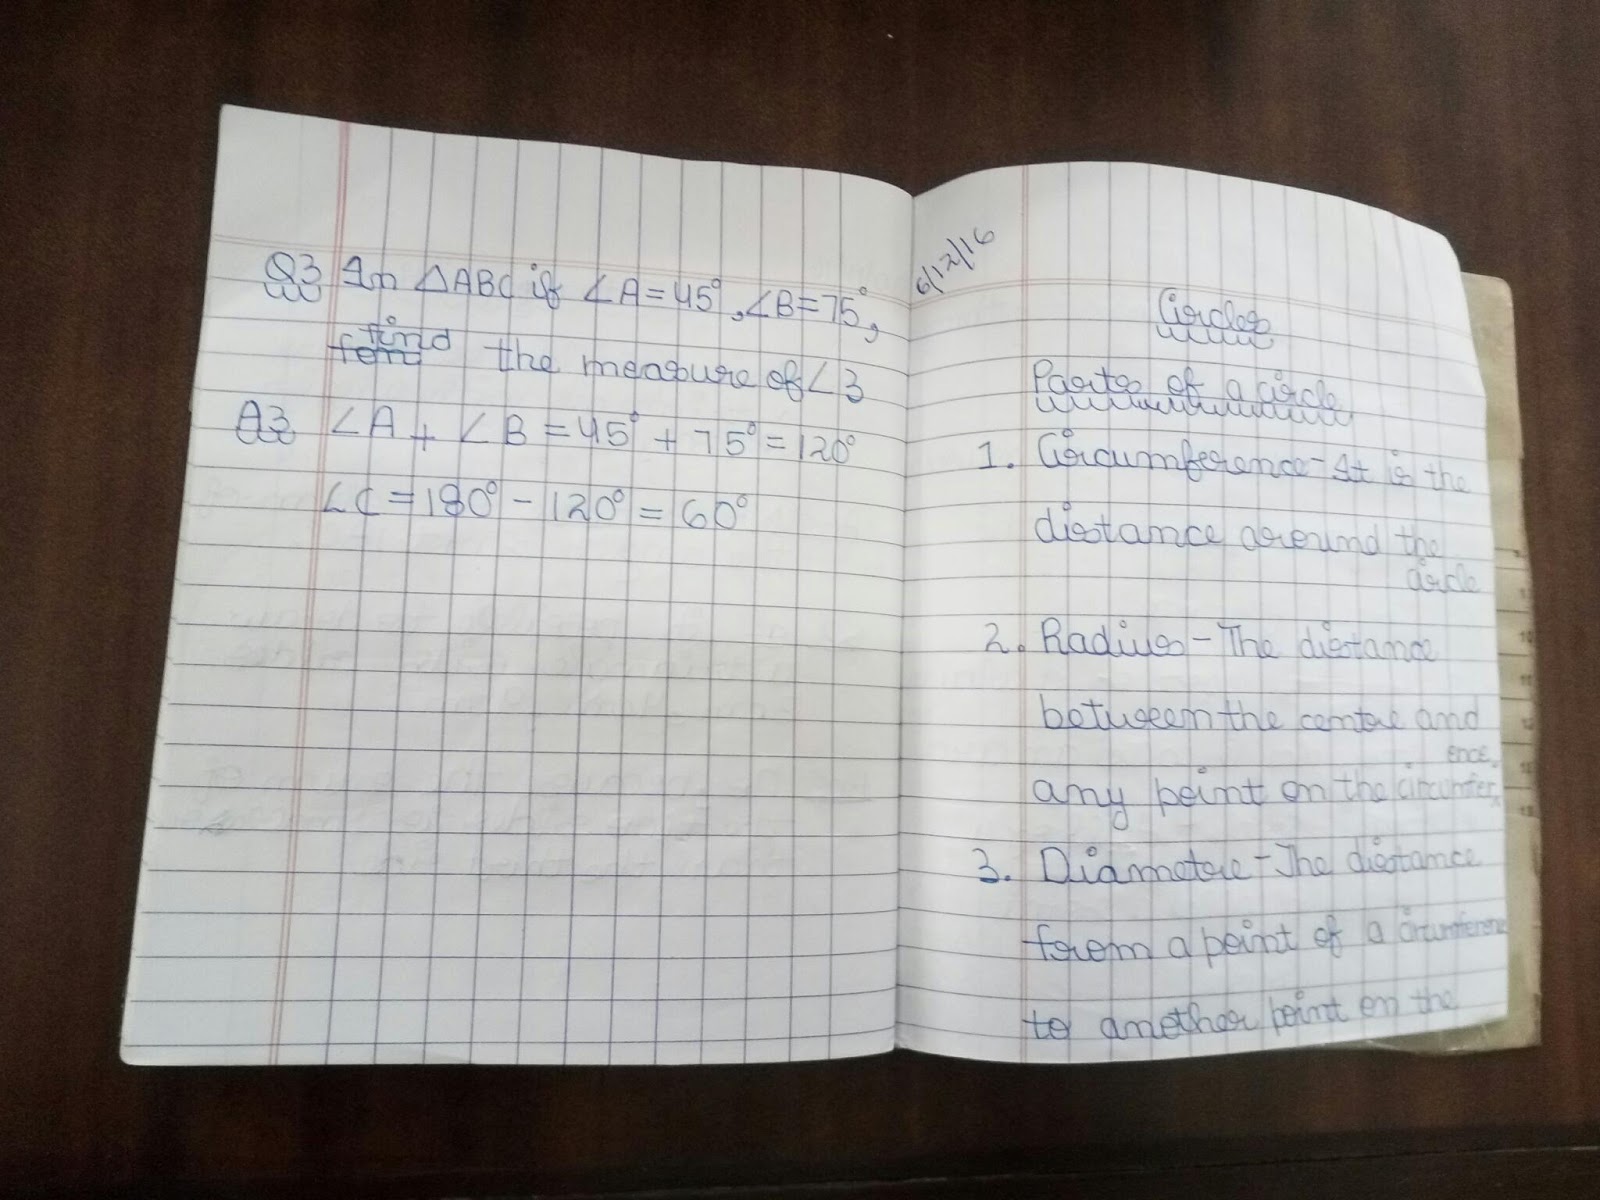 Q3 In △ABC if ∠A=45°, ∠B=75°,
find
fem the measure of ∠3
A3 ∠A + ∠B = 45° + 75° = 120°
∠C = 180° - 120° = 60°
6/12/16
Circles
Parts of a circle
1. Circumference - It is the
distance around the
circle
2. Radius - The distance
between the centre and
ence.
any point on the circumfer
3. Diametre - The distance
from a point of a circumference
to another point on the